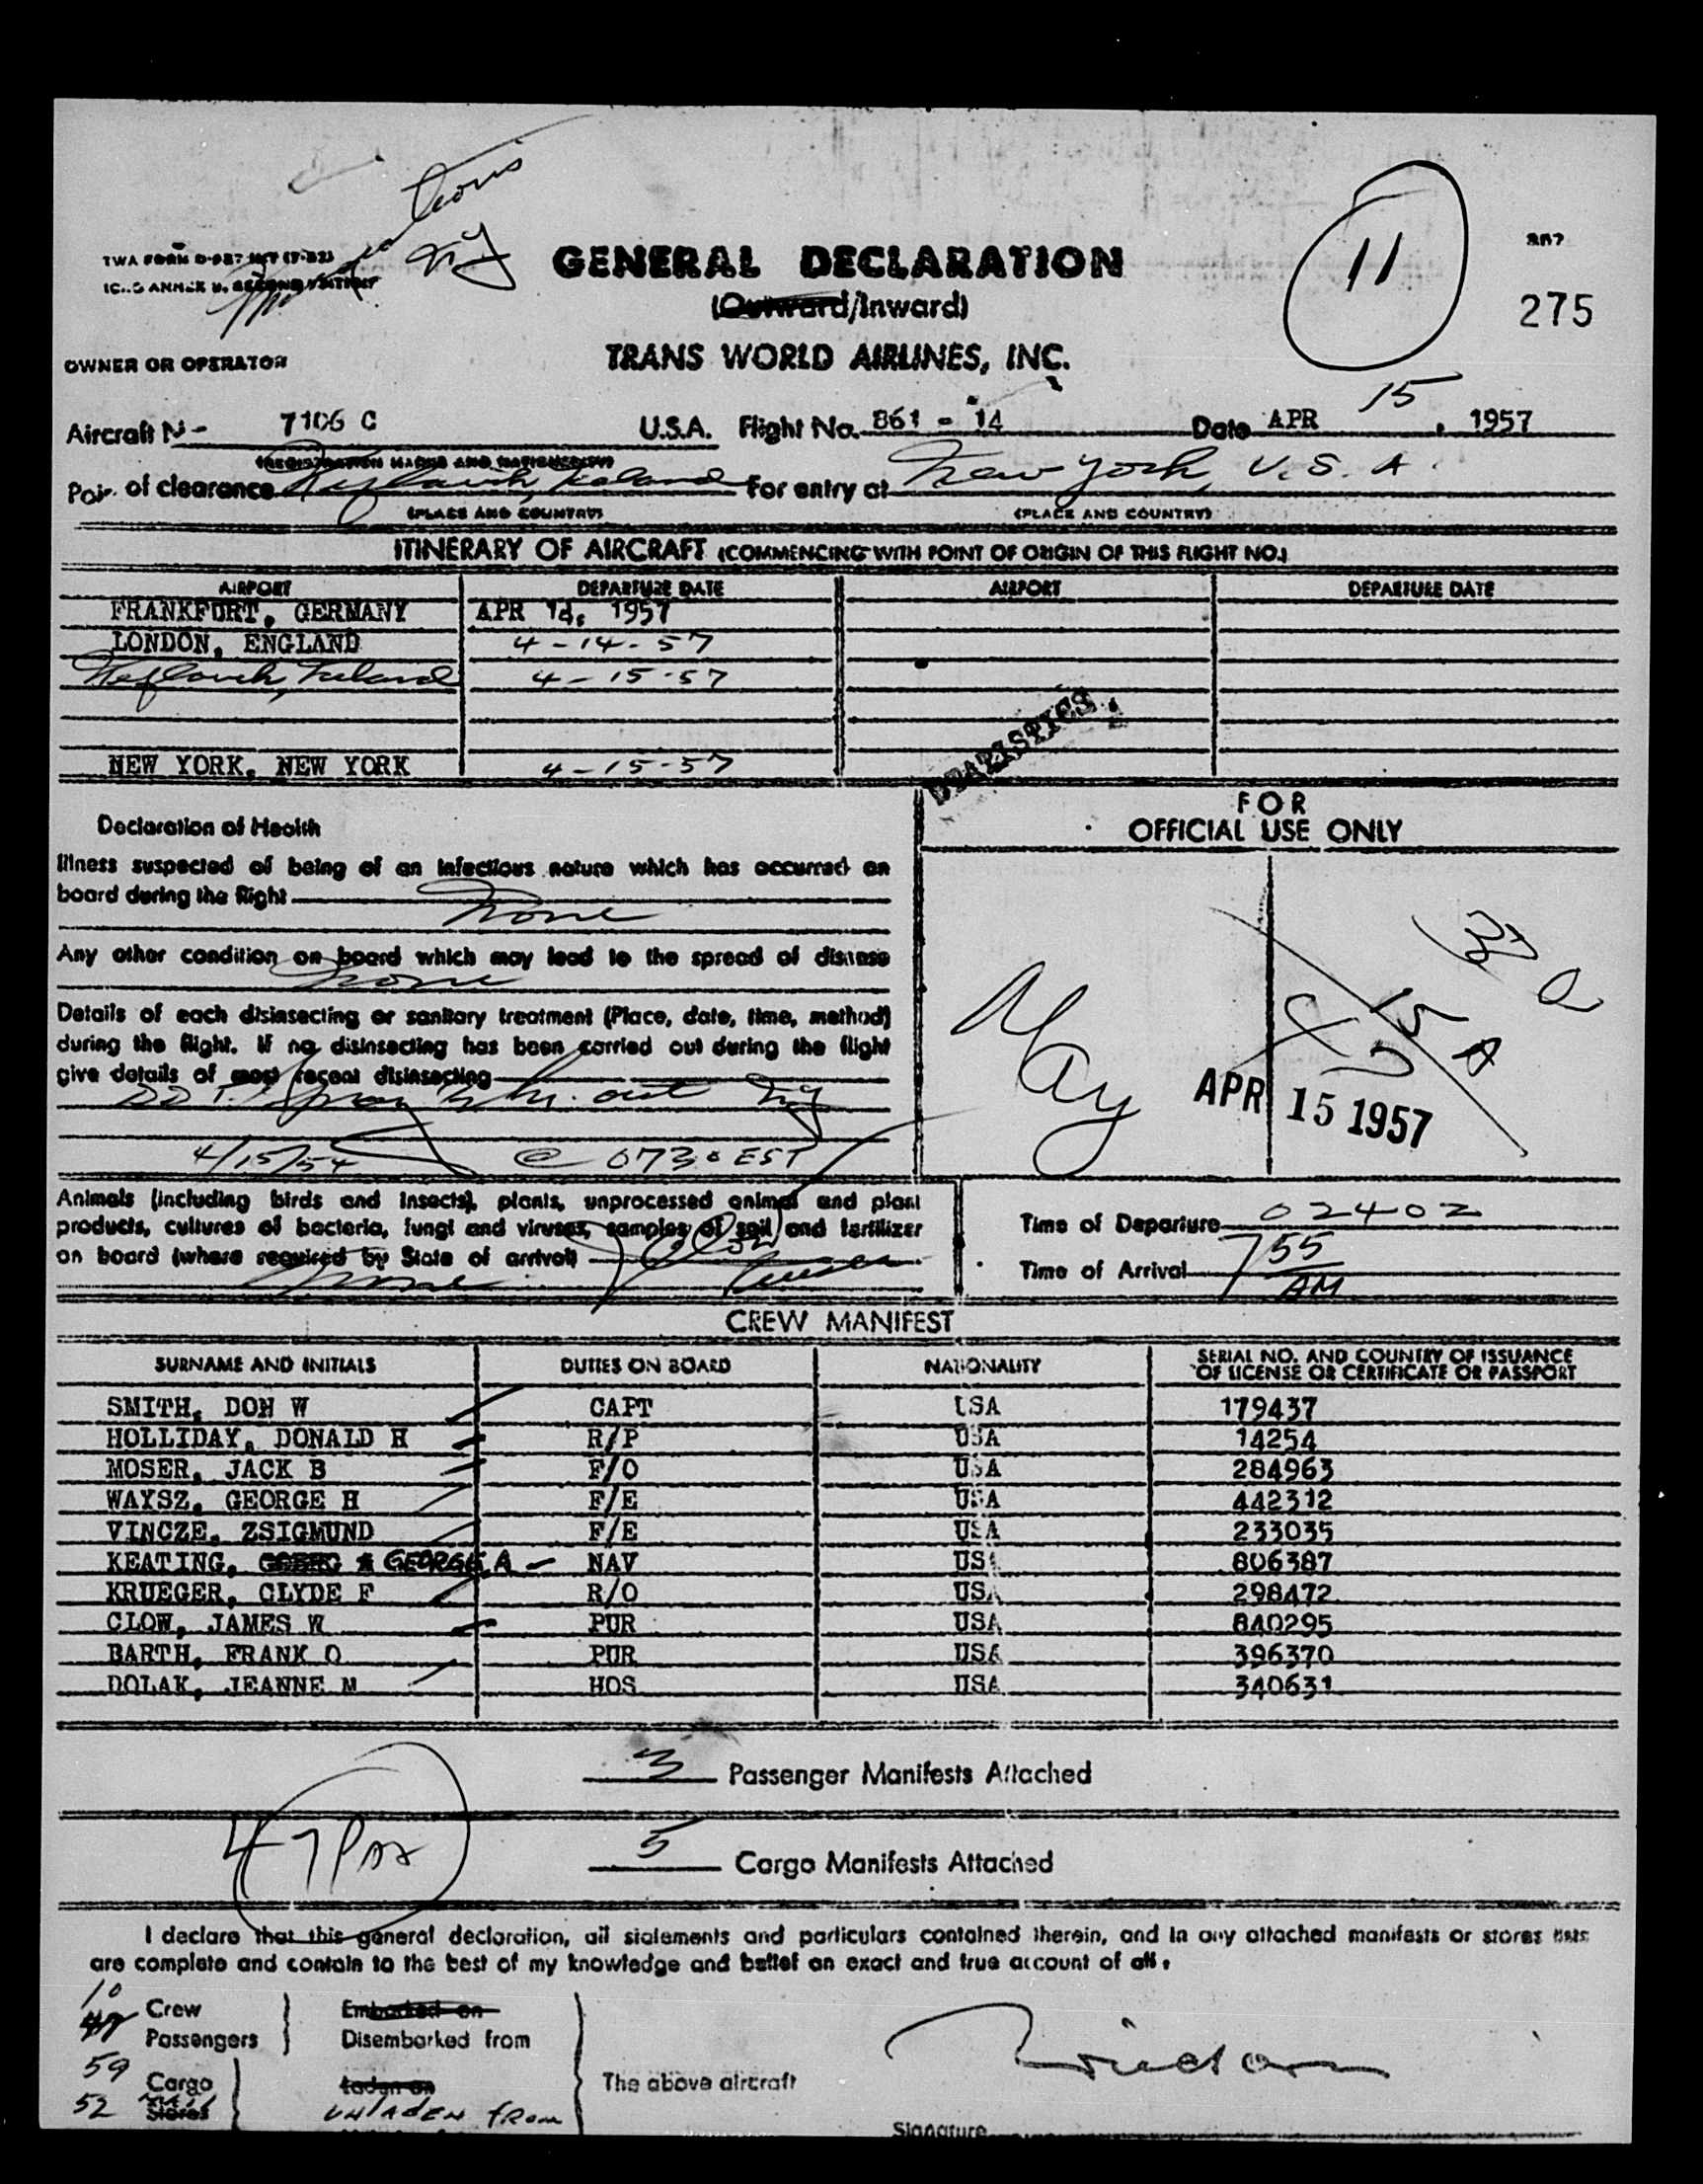 TWA FORM
GENERAL DECLARATION
(Outward/Inward)
11
275
OWNER OR OPERATOR
TRANS WORLD AIRLINES, INC.
Aircraft N - 7106 C U.S.A. Flight No. 861 - 14 Date APR 15, 1957
(REGISTRATION MARKS AND NATIONALITY)
of clearance For entry at New York, U.S.A.
(PLACE AND COUNTRY) (PLACE AND COUNTRY)
ITINERARY OF AIRCRAFT (COMMENCING WITH POINT OF ORIGIN OF THIS FLIGHT NO.)
AIRPORT DEPARTURE DATE AIRPORT DEPARTURE DATE
FRANKFURT, GERMANY APR 14, 1957
LONDON, ENGLAND 4-14-57
4-15-57
NEW YORK, NEW YORK 4-15-57
STATISTICS
FOR
OFFICIAL USE ONLY
Declaration of Health
Illness suspected of being of an infectious nature which has occurred on
board during the flight None
Any other condition on board which may lead to the spread of disease
None
Details of each disinsecting or sanitary treatment (Place, date, time, method)
during the flight. If no disinsecting has been carried out during the flight
give details of most recent disinsecting
out
@ 0730 EST
May
APR 15 1957
Animals (including birds and insects), plants, unprocessed animal and plant
products, cultures of bacteria, fungi and viruses, samples of soil and fertilizer
on board (where required by State of arrival)
None
Time of Departure 0240Z
Time of Arrival 755 AM
CREW MANIFEST
SURNAME AND INITIALS DUTIES ON BOARD NATIONALITY SERIAL NO. AND COUNTRY OF ISSUANCE OF LICENSE OR CERTIFICATE OR PASSPORT
SMITH, DON W CAPT USA 179437
HOLLIDAY, DONALD H R/P USA 14254
MOSER, JACK B F/O USA 284963
WAYSZ, GEORGE H F/E USA 442312
VINCZE, ZSIGMUND F/E USA 233035
KEATING, GEORGE A NAV USA 806387
KRUEGER, CLYDE F R/O USA 298472
CLOW, JAMES W PUR USA 840295
BARTH, FRANK O PUR USA 396370
DOLAK, JEANNE M HOS USA 340631
3 Passenger Manifests Attached
47 Pax
5 Cargo Manifests Attached
I declare that this general declaration, all statements and particulars contained therein, and in any attached manifests or stores lists
are complete and contain to the best of my knowledge and belief an exact and true account of all.
10 Crew
47 Passengers
Embarked on
Disembarked from
59 Cargo
52 Stores
Laden on
UNLADEN FROM
The above aircraft
Signature